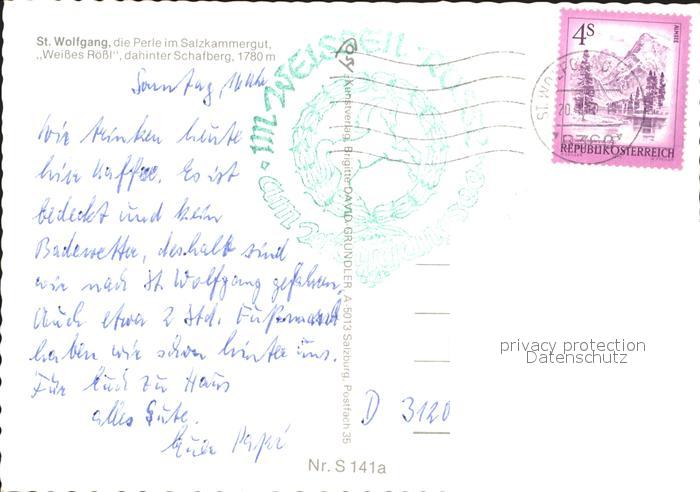 St. Wolfgang, die Perle im Salzkammergut,
„Weißes Rößl", dahinter Schafberg, 1780 m
Sonntag, 16 Uhr
Wir trinken heute
hier Kaffee. Es ist
bedeckt und kein
Badewetter, deshalb sind
wir nach St. Wolfgang gefahren.
Auch etwa 2 Std. Fußmarsch
haben wir schon hinter uns.
Für Euch zu Haus
alles Gute.
Euer Papi
IM WEISSEN RÖSSL
am Wolfgangsee
Kunstverlag Brigitte DAVID-GRUNDLER, A-5013 Salzburg, Postfach 35
Nr. S 141a
4 S
ALMSEE
REPUBLIK ÖSTERREICH
ST. WOLFGANG
20.
5360
privacy protection
Datenschutz
D 3120